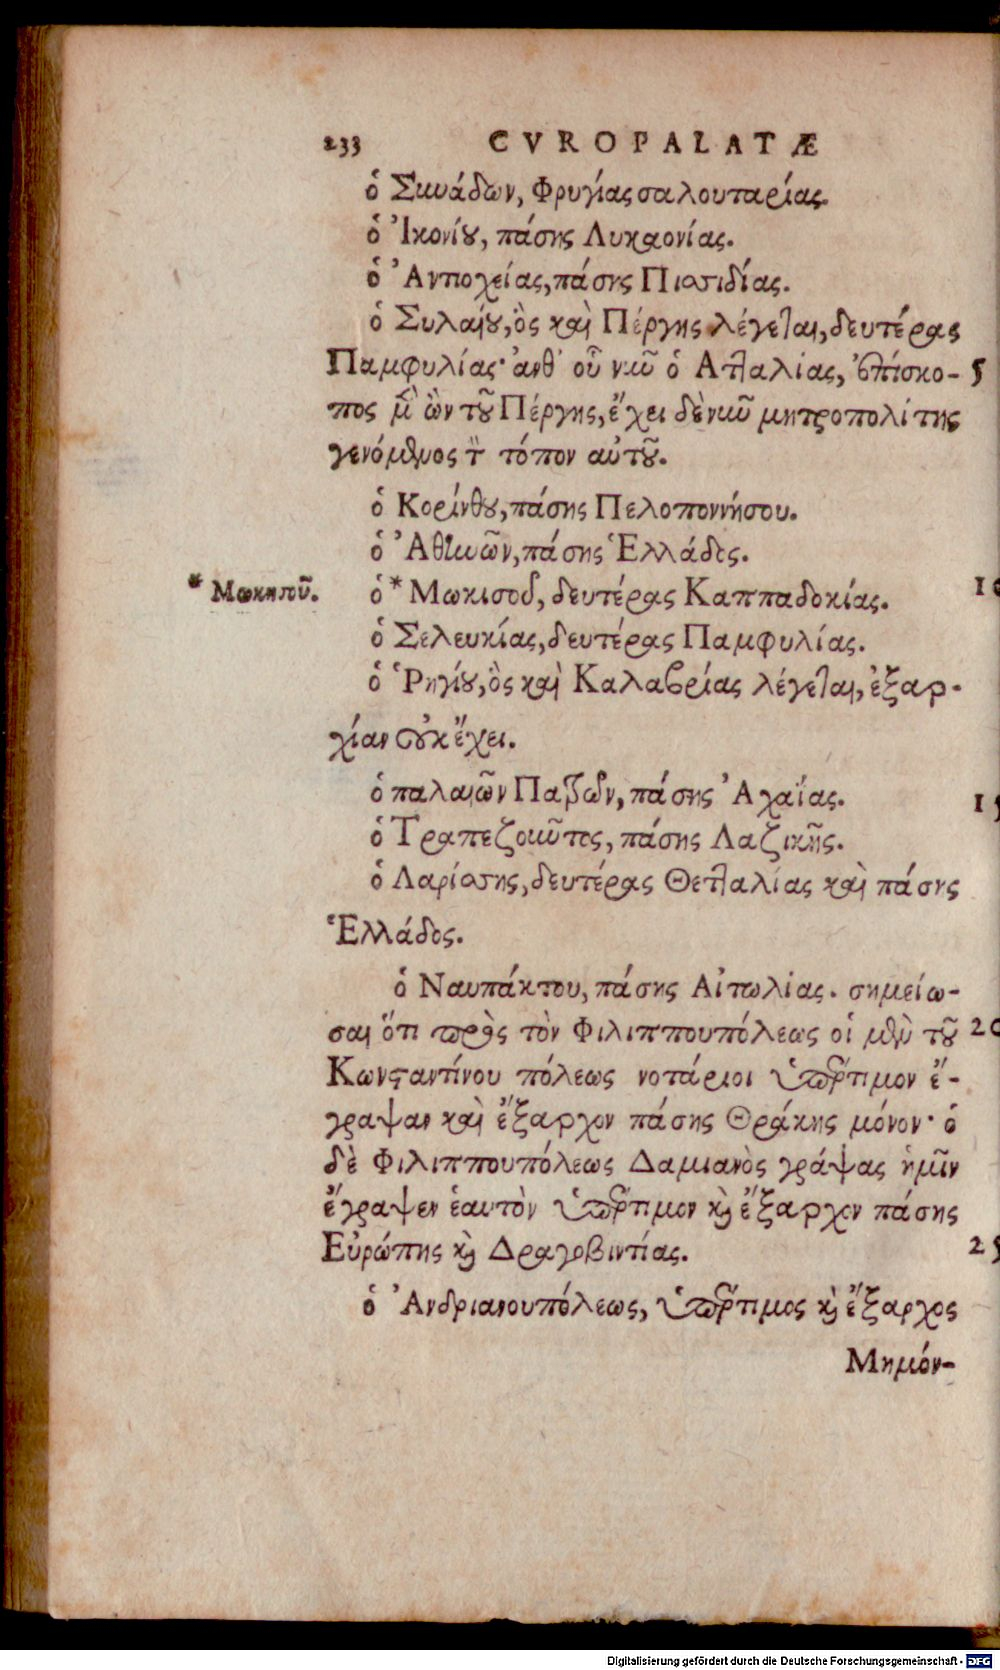 233 CVROPALATÆ
ὁ Συνάδων, Φρυγίας σαλουταρίας.
ὁ Ἰκονίου, πάσης Λυκαονίας.
ὁ Ἀντιοχείας, πάσης Πισσιδίας.
ὁ Συλαίου, ὃς καὶ Πέργης λέγεται, δευτέρας
Παμφυλίας· ἀνθ' οὗ νῦν ὁ Ἀτταλίας, ἐπίσκο- 5
πος μὲν ὢν τοῦ Πέργης, ἔχει δὲ νῦν μητροπολίτης
γενόμενος τὸν τόπον αὐτοῦ.
ὁ Κορίνθου, πάσης Πελοποννήσου.
ὁ Ἀθηνῶν, πάσης Ἑλλάδος.
* Μωκησοῦ. ὁ * Μωκισοῦ, δευτέρας Καππαδοκίας. 10
ὁ Σελευκίας, δευτέρας Παμφυλίας.
ὁ Ῥηγίου, ὃς καὶ Καλαβρίας λέγεται, ἐξαρ-
χίαν οὐκ ἔχει.
ὁ παλαιῶν Πατρῶν, πάσης Ἀχαΐας. 15
ὁ Τραπεζοῦντος, πάσης Λαζικῆς.
ὁ Λαρίσσης, δευτέρας Θετταλίας καὶ πάσης
Ἑλλάδος.
ὁ Ναυπάκτου, πάσης Αἰτωλίας. σημείω-
σαι ὅτι πρὸς τὸν Φιλιππουπόλεως οἱ μὲν τοῦ 20
Κωνσταντίνου πόλεως νοτάριοι ὑπέρτιμον ἔ-
γραψαν καὶ ἔξαρχον πάσης Θράκης μόνον· ὁ
δὲ Φιλιππουπόλεως Δαμιανὸς γράψας ἡμῖν
ἔγραψεν ἑαυτὸν ὑπέρτιμον καὶ ἔξαρχον πάσης
Εὐρώπης καὶ Δραγοβιντίας. 25
ὁ Ἀνδριανουπόλεως, ὑπέρτιμος καὶ ἔξαρχος
Μημόν-
Digitalisierung gefördert durch die Deutsche Forschungsgemeinschaft - DFG